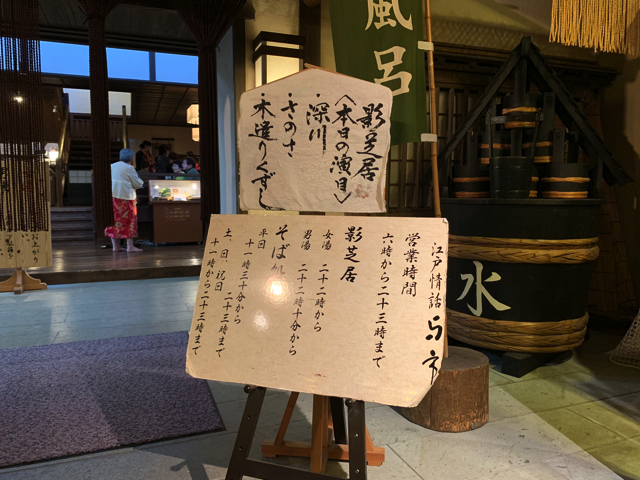 影芝居
〈本日の演目〉
・深川
・さのさ
・木遣りくずし
江戸情話 与市
営業時間
六時から二十三時まで
影芝居
女湯 二十二時から
男湯 二十二時十分から
そば処
平日
十一時三十分から
二十三時まで
土、日、祝日
十一時から二十三時まで
風呂
水